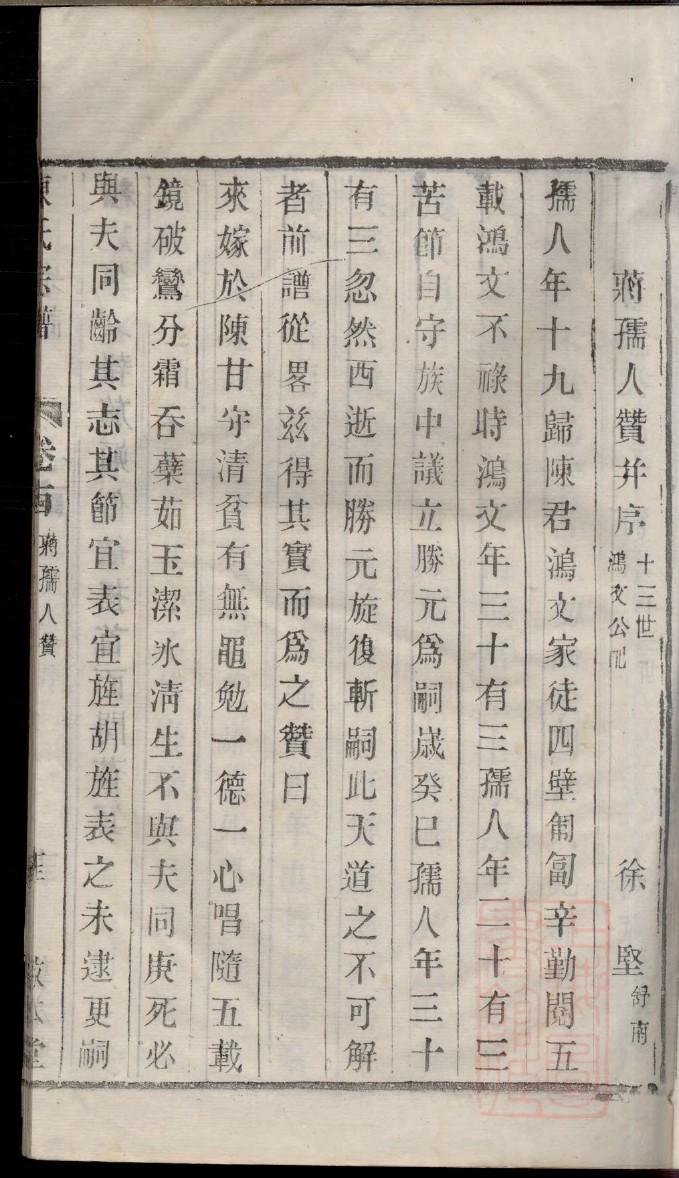 蔣孺人贊并序 十三世鴻文公配 徐堅 舒甫
孺人年十九歸陳君鴻文家徒四壁匍匐辛勤閱五
載鴻文不祿時鴻文年三十有三孺人年二十有三
苦節自守族中議立勝元爲嗣歲癸巳孺人年三十
有三忽然西逝而勝元旋復斬嗣此天道之不可解
者前譜從畧兹得其實而爲之贊曰
來嫁於陳甘守清貧有無黽勉一德一心唱隨五載
鏡破鸞分霜吞蘗茹玉潔氷淸生不與夫同庚死必
與夫同齡其志其節宜表宜旌胡旌表之未逮更嗣
陳氏宗譜 卷 蔣孺人贊 敬本堂